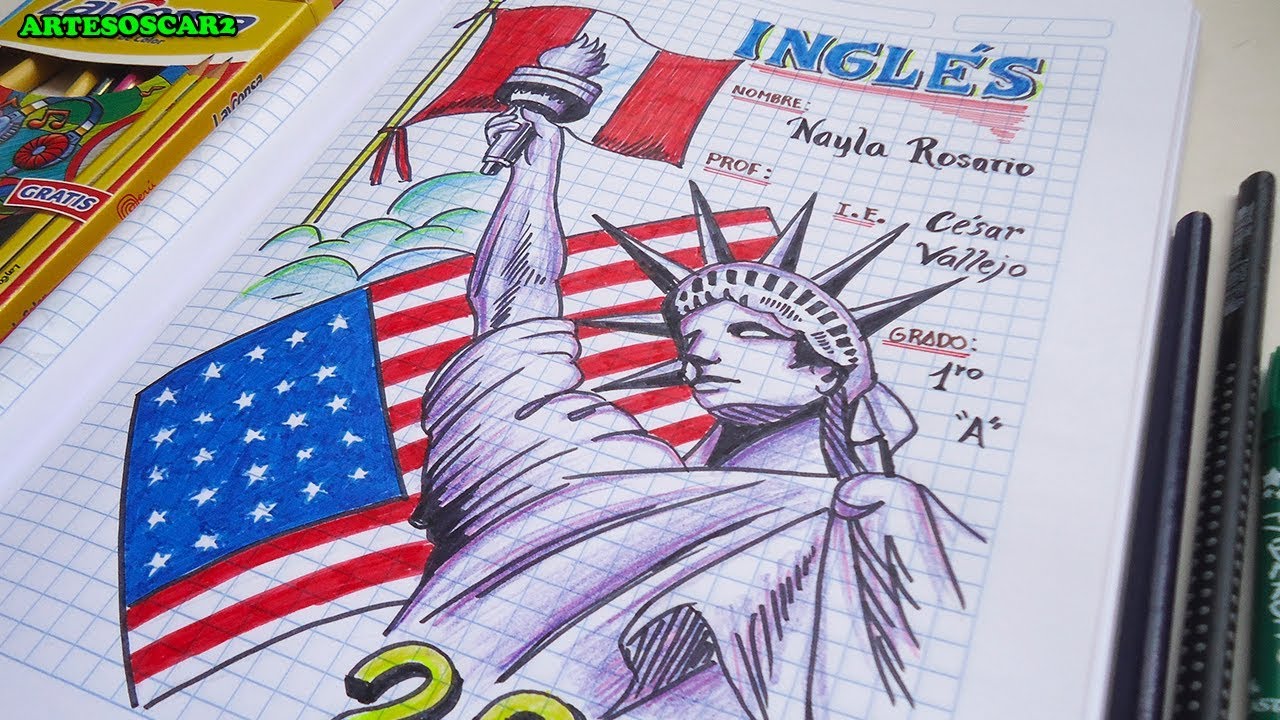 ARTESOSCAR2
LayConsa
GRATIS
Perú
INGLÉS
NOMBRE:
Nayla Rosario
PROF:
I.E. César
Vallejo
GRADO:
1ro
"A"
20